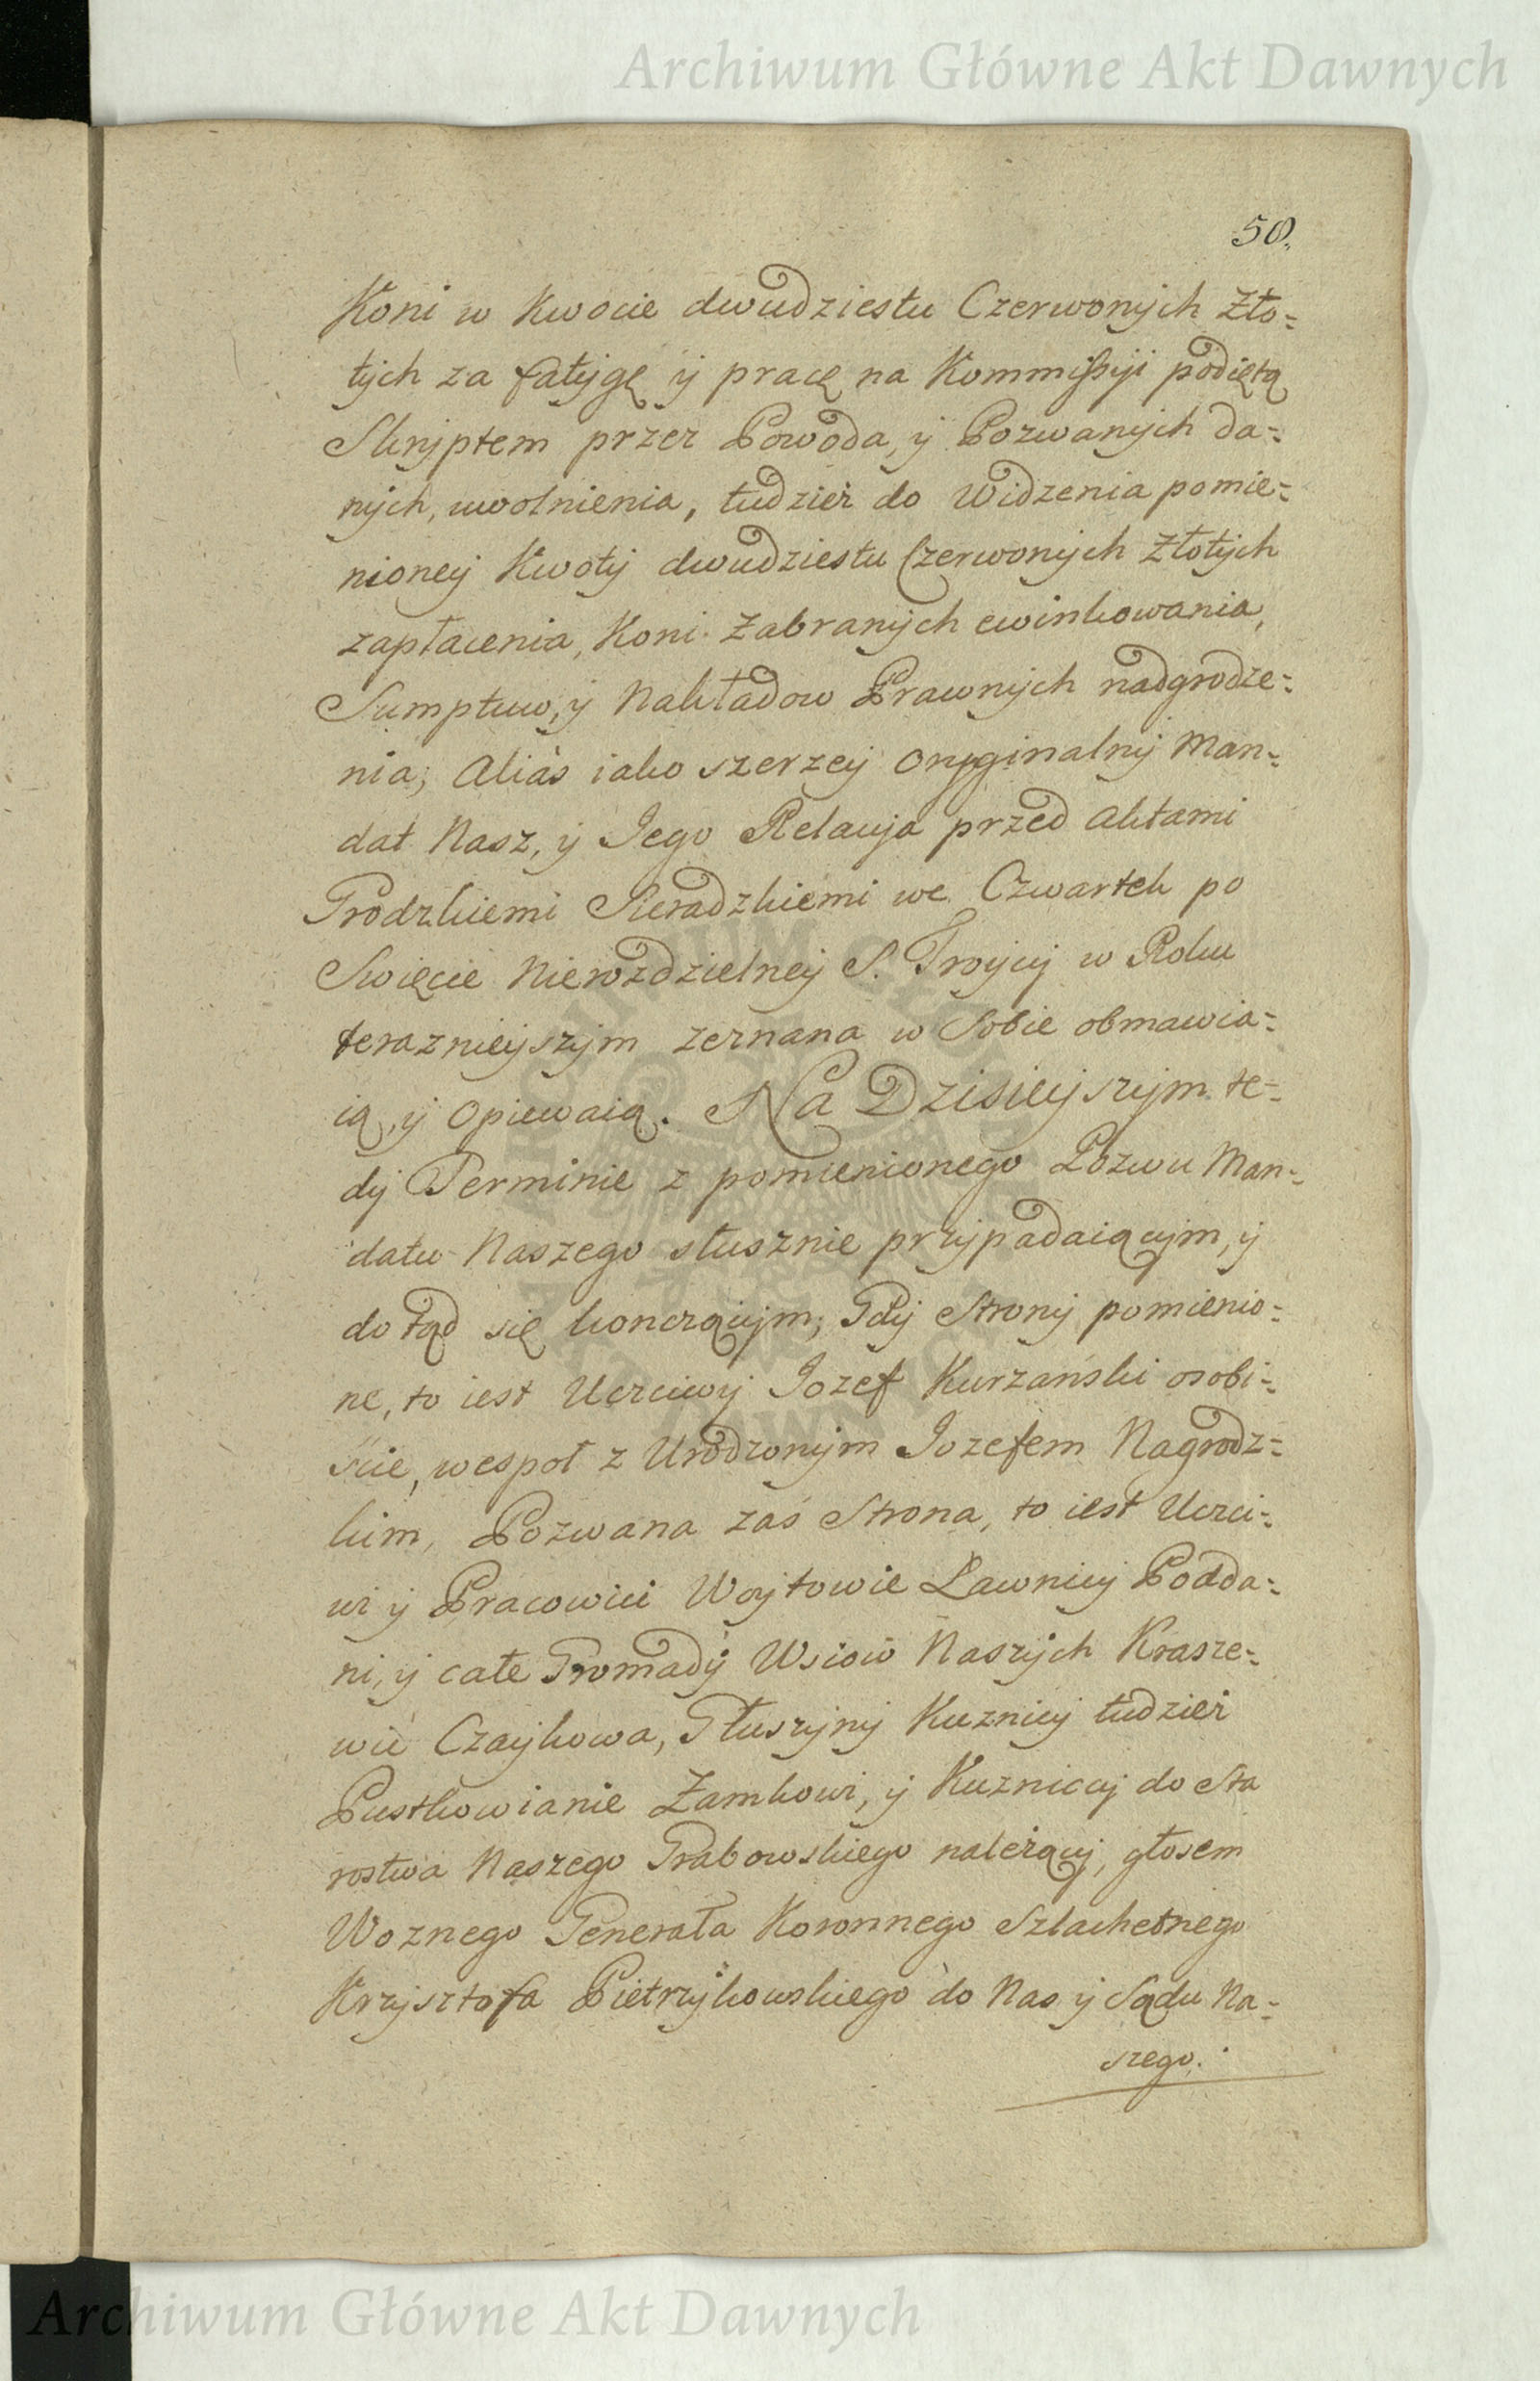 Archiwum Główne Akt Dawnych
50.
Koni w Kwocie dwudziestu Czerwonych Zło=
tych za fatygę y pracę na Kommissyi podiętą
Skryptem przez Powoda, y Pozwanych da=
nych, uwolnienia, tudzież do Widzenia pomie=
nioney Kwoty dwudziestu Czerwonych Złotych
zapłacenia, Koni Zabranych ewinkowania,
Sumptuw, y Nakładow Prawnych nadgrodze=
nia; Aliàs iako szerzey Oryginalny Man=
dat Nasz, y Jego Relacya przed Aktami
Grodzkiemi Sieradzkiemi we Czwartek po
Swięcie Nierozdzielney S. Troycy w Roku
teraznieyszym zeznana w Sobie obmawia=
ią, y Opiewaią. Na Dzisieyszym te=
dy Terminie z pomienionego Pozwu Man=
datu Naszego słusznie przypadaiącym, y
do tąd się konczącym; Gdy Strony pomienio=
ne, to iest Uczciwy Jozef Kurzański osobi=
ście, wespoł z Urodzonym Jozefem Nagrodz=
kim, Pozwana zaś Strona, to iest Uczci=
wi y Pracowici Woytowie Ławnicy Podda=
ni, y całe Gromady Wsiow Naszych Krasze=
wic Czaykowa, Głuszyny Kuznicy tudzież
Pustkowianie Zamkowi, y Kuznicy do Sta
rostwa Naszego Grabowskiego należący, głosem
Woznego Generała Koronnego Szlachetnego
Krzysztofa Pietrzykowskiego do Nas y Sądu Na=
szego.
Archiwum Główne Akt Dawnych